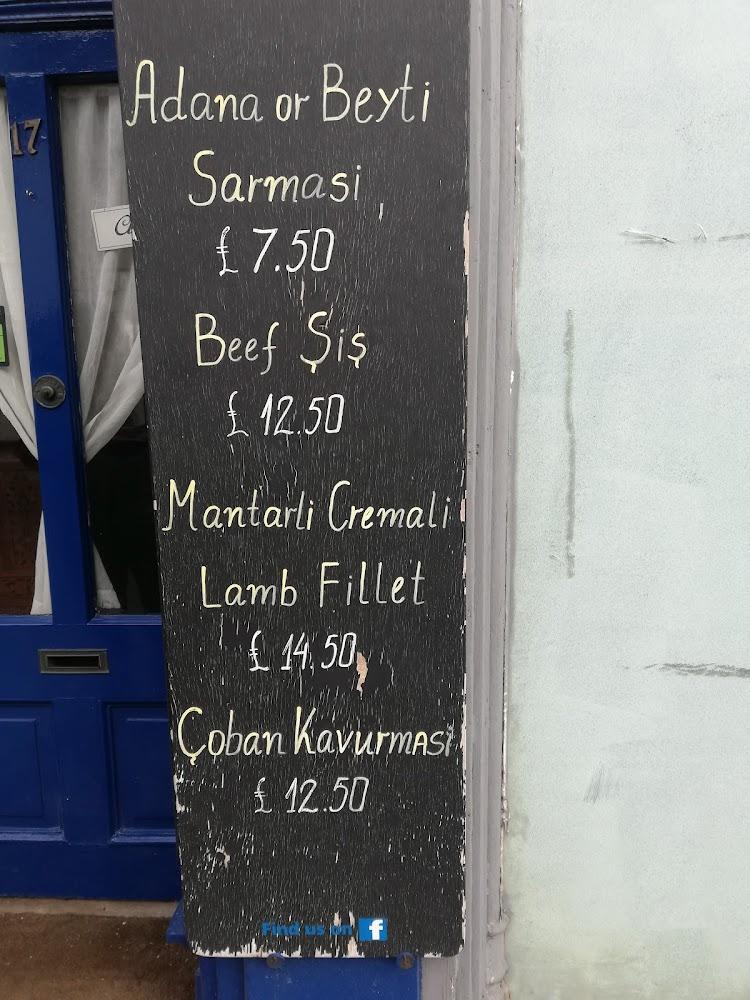 17
Adana or Beyti
Sarmasi
£ 7.50
Beef Şiş
£ 12.50
Mantarli Cremali
Lamb Fillet
£ 14.50
Çoban Kavurması
£ 12.50
Find us on f